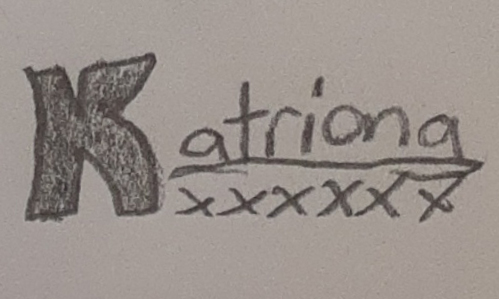 Katriona
xxxxxx